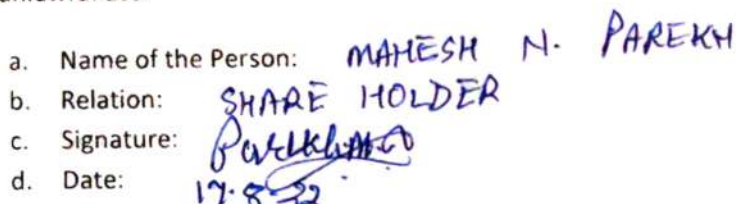 a. Name of the Person: MAHESH N. PAREKH
b. Relation: SHARE HOLDER
c. Signature:
d. Date: 17.8.22